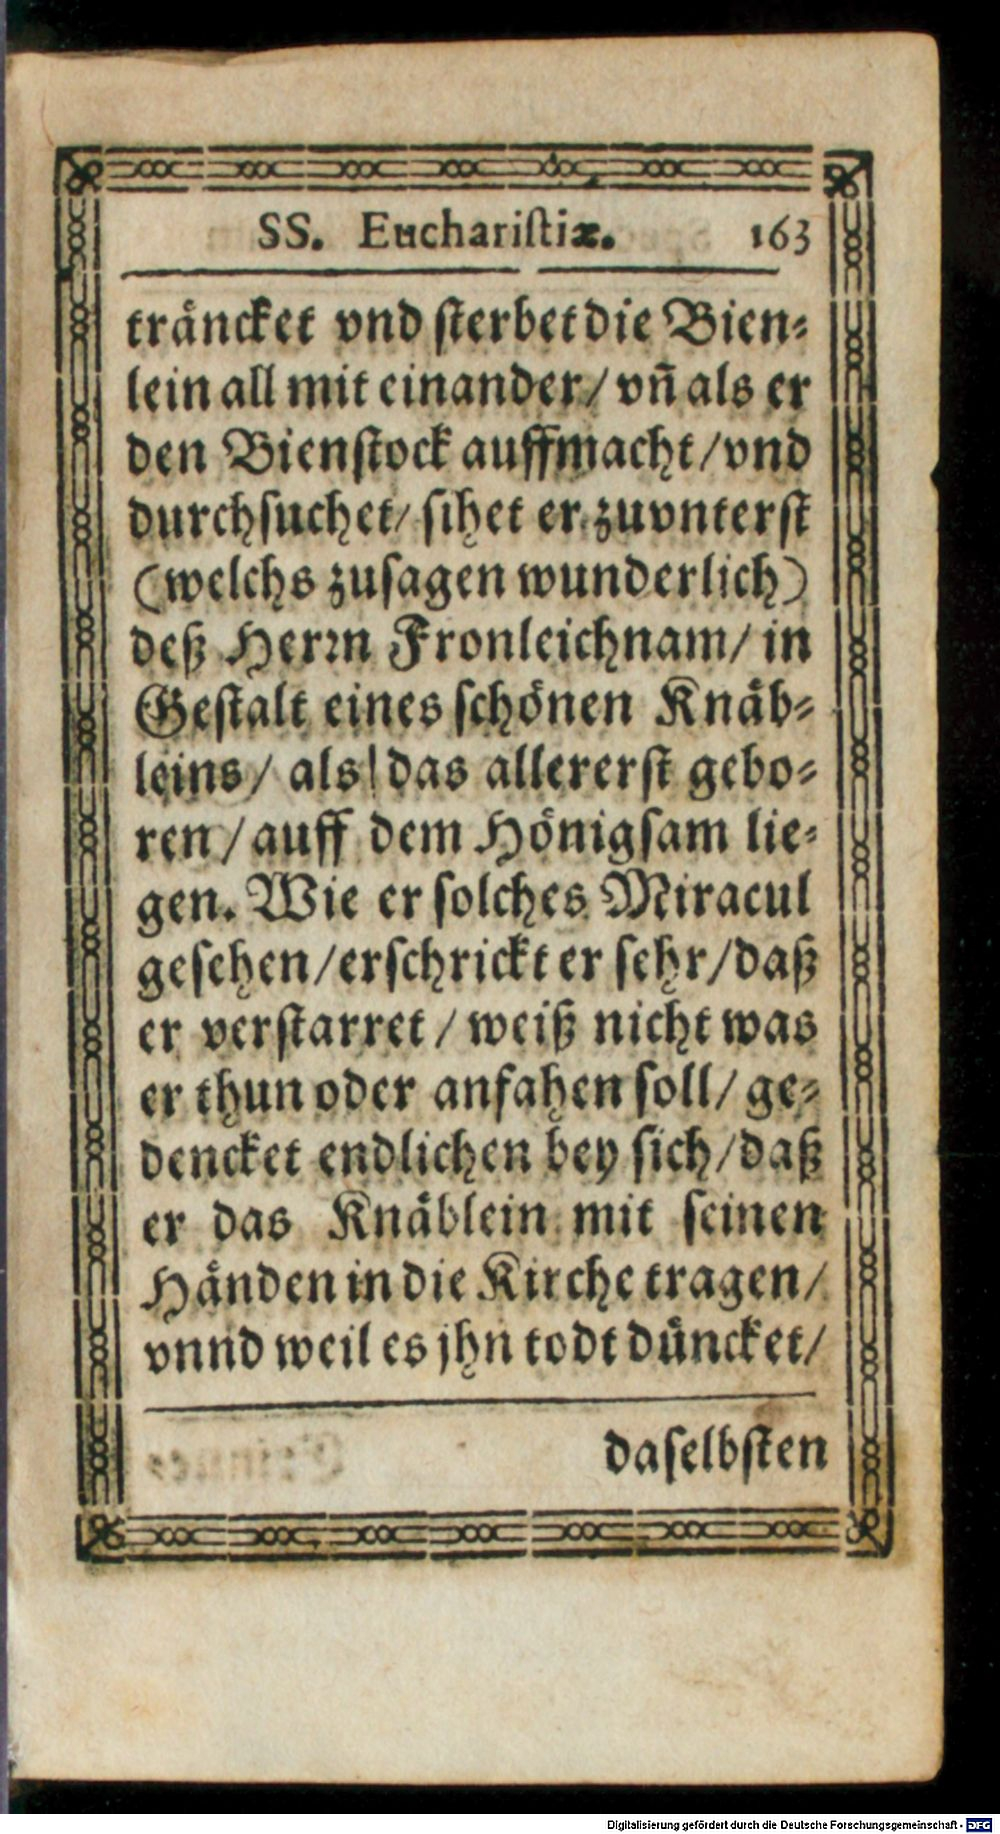 SS. Euchariſtiæ. 163
träncket vnd ſterbet die Bien⸗
lein all mit einander/ vn̄ als er
den Bienſtock auffmacht/ vnd
durchſuchet/ ſihet er zuvnterſt
(welchs zuſagen wunderlich)
deß Herꝛn Fronleichnam/ in
Geſtalt eines ſchönen Knäb⸗
leins/ als das allererſt gebo⸗
ren/ auff dem Hönigſam lie⸗
gen. Wie er ſolches Miracul
geſehen/ erſchrickt er ſehr/ daß
er verſtarret/ weiß nicht was
er thun oder anfahen ſoll/ ge⸗
dencket endlichen bey ſich/ daß
er das Knäblein mit ſeinen
Händen in die Kirche tragen/
vnnd weil es jhn todt düncket/
daſelbſten
Digitalisierung gefördert durch die Deutsche Forschungsgemeinschaft - DFG